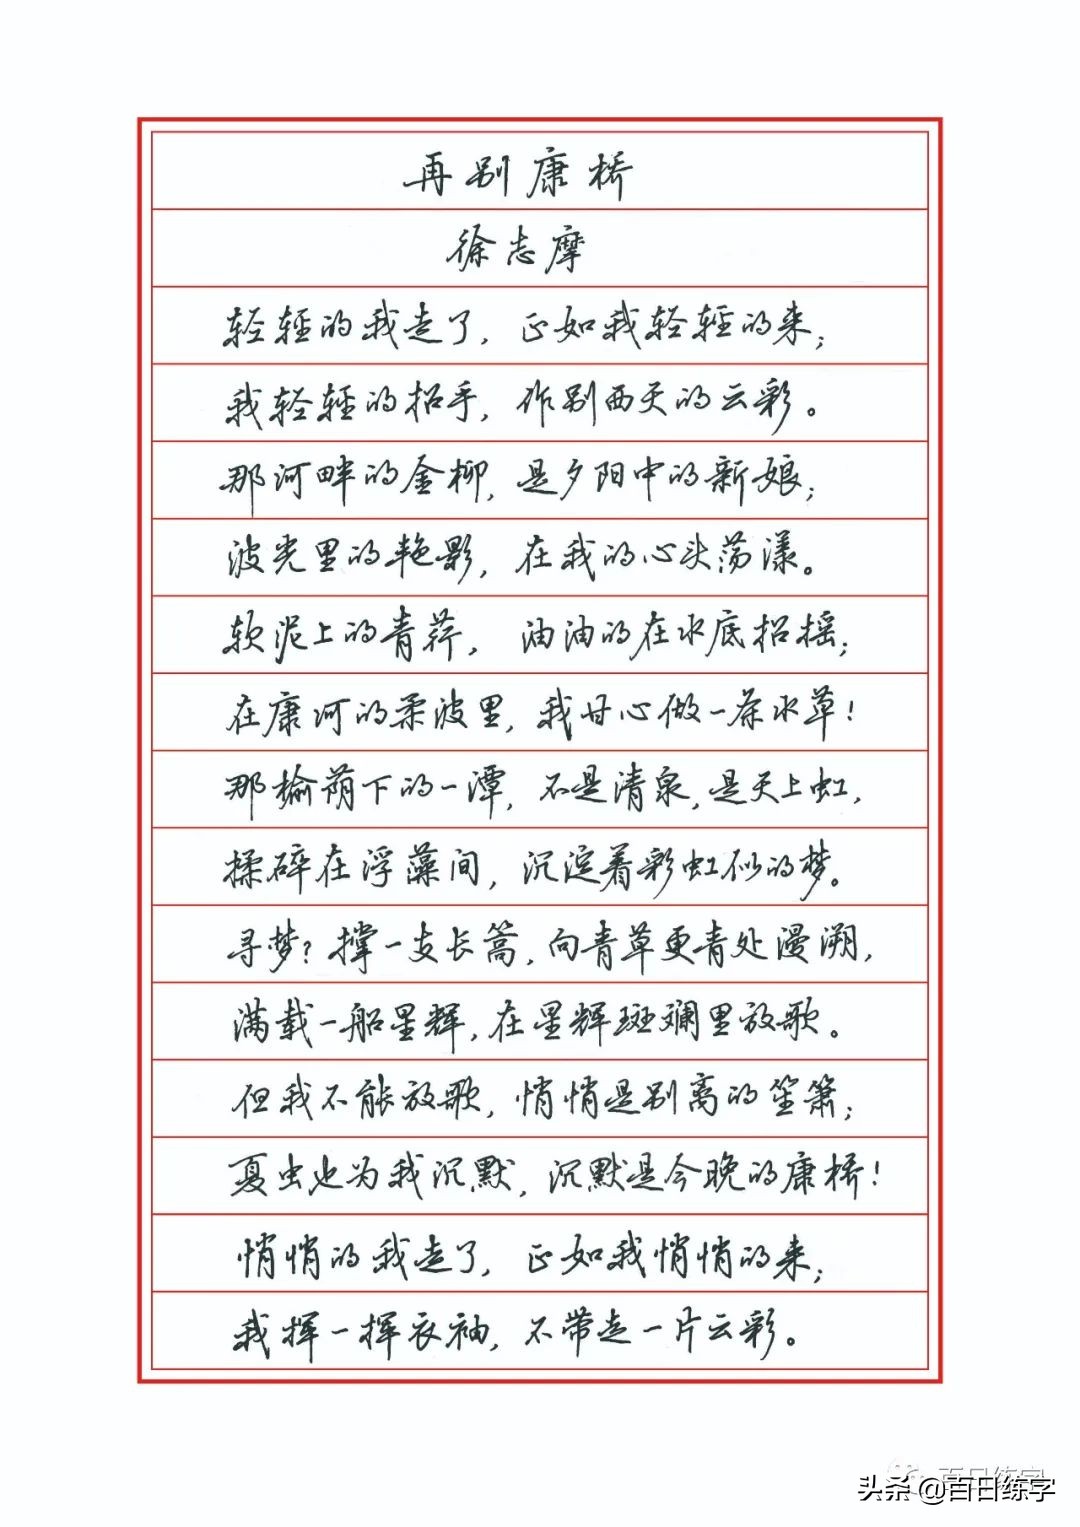 再别康桥
徐志摩
轻轻的我走了，正如我轻轻的来；
我轻轻的招手，作别西天的云彩。
那河畔的金柳，是夕阳中的新娘；
波光里的艳影，在我的心头荡漾。
软泥上的青荇，油油的在水底招摇；
在康河的柔波里，我甘心做一条水草！
那榆荫下的一潭，不是清泉，是天上虹，
揉碎在浮藻间，沉淀着彩虹似的梦。
寻梦？撑一支长篙，向青草更青处漫溯，
满载一船星辉，在星辉斑斓里放歌。
但我不能放歌，悄悄是别离的笙箫；
夏虫也为我沉默，沉默是今晚的康桥！
悄悄的我走了，正如我悄悄的来；
我挥一挥衣袖，不带走一片云彩。
百日练字
头条 @百日练字